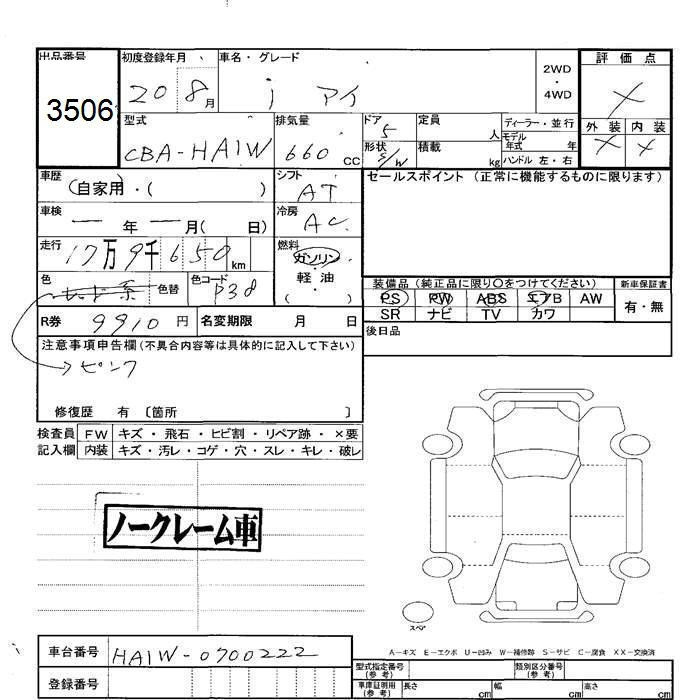 出品番号 初度登録年月 車名・グレード 2WD・4WD 評価点
3506 20 8月 i アイ ×
型式 排気量 ドア 定員 人 ディーラー・並行 外装 内装
CBA-HA1W 660cc 5 モデル年式 年 × ×
形状 S/W 積載 kg ハンドル 左・右
車歴 (自家用・( ) シフト AT セールスポイント (正常に機能するものに限ります)
車検 ー年ー月( 日) 冷房 AC
走行 17万9千650km 燃料 ガソリン・軽油・( )
色 レッド系 色替 色コード P38 装備品 (純正品に限り〇をつけてください) 新車保証書
PS PW ABS エアB AW 有・無
SR ナビ TV カワ
R券 9910円 名変期限 月 日 後日品
注意事項申告欄(不具合内容等は具体的に記入して下さい)
→ピンク
修復歴 有 〔箇所 〕
検査員 FW キズ・飛石・ヒビ割・リペア跡・×要
記入欄 内装 キズ・汚レ・コゲ・穴・スレ・キレ・破レ
ノークレーム車
スペア
A-キズ E-エクボ U-凹み W-補修跡 S-サビ C-腐食 XX-交換済
車台番号 HA1W-0700222
型式指定番号(参考) 類別区分番号(参考)
登録番号 車庫証明用(参考) 長さ cm 幅 cm 高さ cm